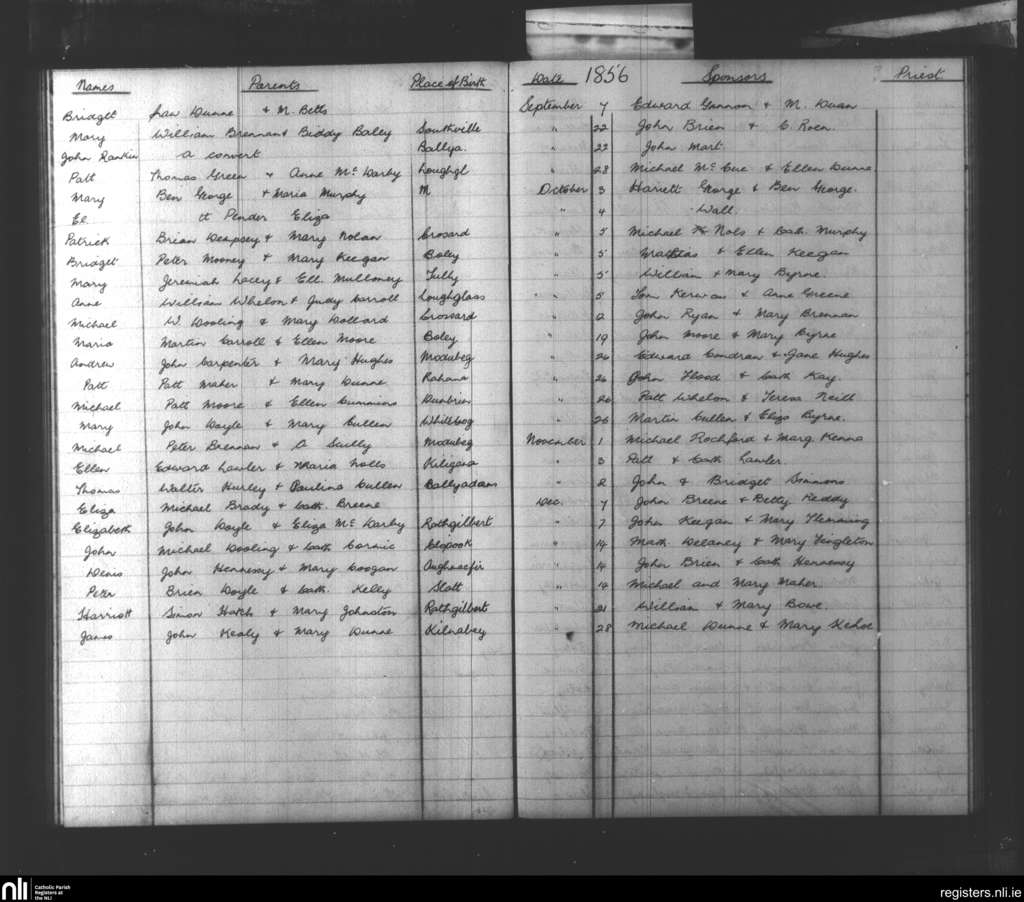 Names Parents Place of Birth Date 1856 Sponsors Priest
Bridget Dunne & M. Betts September 7 Edward Gannon & M.
Mary William Brennan & Biddy Baley Southville " 22 John Brien & C.
John Rankin a convert Ballya. " 22 John Mart.
Patt Thomas Green & Anne Mc Darby Loughgl " 28 Michael Mc Cue & Ellen Dunne
Mary Ben George & Maria Murphy M October 3 Harriett George & Ben George.
El tt Pender Eliza " 4 Wall.
Patrick Brian Dempsey & Mary Nolan Crosard " 5 Michael Nols & Cath. Murphy
Bridget Peter Mooney & Mary Keegan Boley " 5 Mathias & Ellen Keegan
Mary Jeremiah Lacey & Ell. Mulloney Tully " 5 William & Mary Byrne.
Anne William Whelon & Judy Carroll Loughglass " 5 Tom Kerwan & Anne Greene
Michael W. Dooling & Mary Dollard Crossard " 2 John Ryan & Mary Brennan
Maria Martin Carroll & Ellen Moore Boley " 19 John Moore & Mary Byrne
Andrew John Carpenter & Mary Hughes Modubeg " 26 Edward Condran & Jane Hughes
Patt Patt Maher & Mary Dunne Rahana " 26 John Flood & Cath Kay.
Michael Patt Moore & Ellen Cummins Dunbrin " 26 Patt Whelon & Teresa Neill
Mary John Doyle & Mary Cullen Whitebog " 26 Martin Cullen & Eliza Byrne.
Michael Peter Brennan & A Scully Modubeg November 1 Michael Rochford & Marg. Kenna
Ellen Edward Lawler & Maria Nolls Kilgara " 3 Patt & Cath Lawler.
Thomas Walter Hurley & Paulina Cullen Ballyadams " 2 John & Bridget Simmons
Eliza Michael Brady & Cath. Breene Dec. 7 John Breene & Betty Keddy
Elizabeth John Doyle & Eliza Mc Darby Rathgilbert " 7 John Keegan & Mary Flemming
John Michael Dooling & Cath Cormic Clopook " 14 Math Delaney & Mary Singleton
Denis John Hennessy & Mary Coogan " 14 John Brien & Cath Hennessy
Peter Brien Doyle & Cath. Kelly Slatt " 14 Michael and Mary Maher
Harriott Simon Hatch & Mary Johnston Rathgilbert " 21 William & Mary Bowe.
James John Kealy & Mary Dunne Kilnabey " 28 Michael Dunne & Mary Kehoe
nli Catholic Parish
Registers at
the NLI
registers.nli.ie